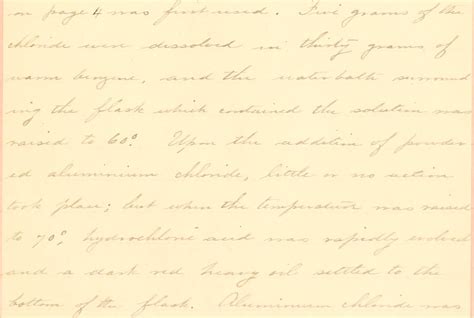 on page 4 was first used. Five grams of the
chloride were dissolved in thirty grams of
warm benzine, and the water bath surround
ing the flask which contained the solution was
raised to 60°. Upon the addition of powder-
ed aluminium chloride, little or no action
took place; but when the temperature was raised
to 70°, hydrochloric acid was rapidly evolved
and a dark red heavy oil settled to the
bottom of the flask. Aluminium chloride was